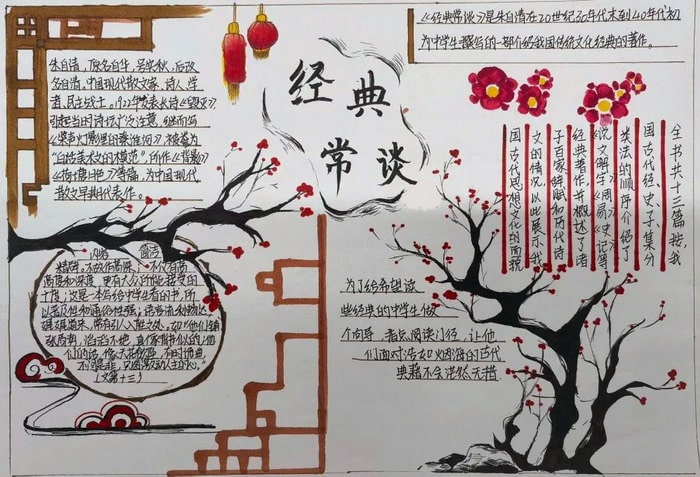 经典
常谈
朱自清，原名自华，号实秋，后改
名自清，中国现代散文家、诗人、学
者、民主战士。1922年发表长诗《毁灭》
引起当时诗坛广泛注意，继而写
《桨声灯影里的秦淮河》，被誉为
“白话美术文的模范”，所作《背影》
《荷塘月色》等篇，为中国现代
散文早期代表作。
《经典常谈》是朱自清在20世纪30年代末到40年代初
为中学生撰写的一部介绍我国传统文化经典的著作。
全书共十三篇，按我
国古代经、史、子、集分
类法的顺序介绍了
《说文解字》《周易》《史记》等
经典著作，并概述了诸
子百家、辞赋和历代诗
文的情况，以此展示我
国古代思想文化的面貌
为了给希望读
些经典的中学生做
个向导，指点阅读门径，让他
们面对浩如烟海的古代
典籍不会茫然无措
内容
高度和深度，更有大众所能接受的
十度；这是一本写给中学生看的书，所
以普及性和通俗性强；语言流利畅达
张仪势，滔滔不绝，真像背书似的；他
们的话，像天花乱坠，有时夸
（文第十三）